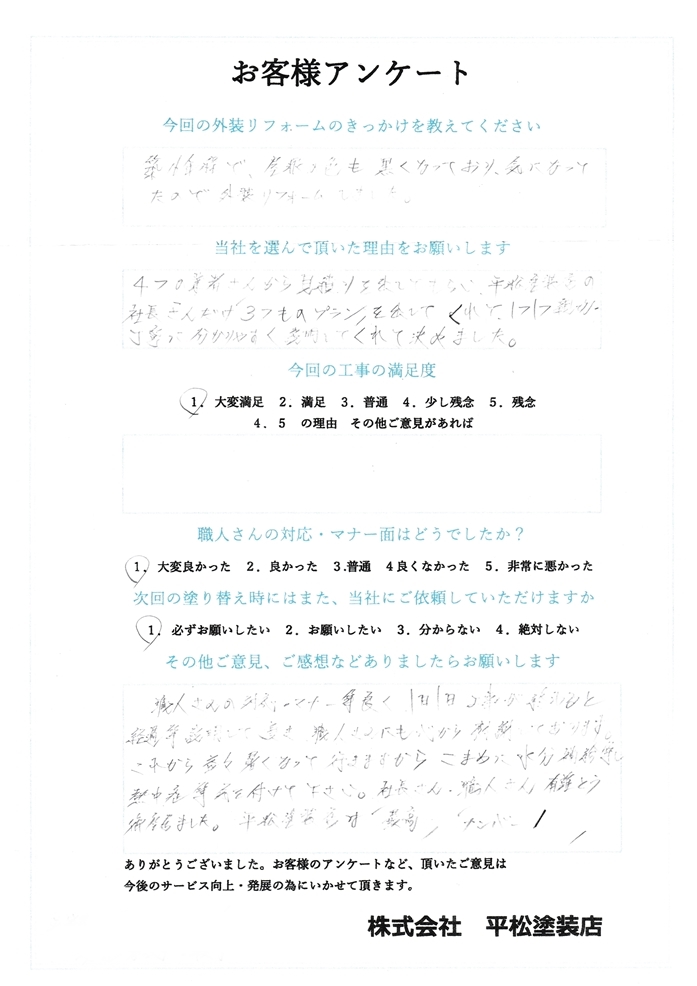 お客様アンケート
今回の外装リフォームのきっかけを教えてください
で、屋根の色も 黒くなっており、気になって
たので 外装リフォーム しました。
当社を選んで頂いた理由をお願いします
4つの業者さんから見積りを出してもらい、平松塗装店の
社長さんだけ 3つものプランを出して くれて、1つ1つ
丁寧に 分かりやすく 説明してくれて決めました。
今回の工事の満足度
1. 大変満足 2. 満足 3. 普通 4. 少し残念 5. 残念
4. 5 の理由 その他ご意見があれば
職人さんの対応・マナー面はどうでしたか？
1. 大変良かった 2. 良かった 3.普通 4良くなかった 5. 非常に悪かった
次回の塗り替え時にはまた、当社にご依頼していただけますか
1. 必ずお願いしたい 2. お願いしたい 3. 分からない 4. 絶対しない
その他ご意見、ご感想などありましたらお願いします
職人さんの 対応、マナー 等良く 1日1日の
説明して 頂き 職人さんにも 感謝しております。
これから 暑くなって 行きますから こまめに 水分補給
熱中症 等 気を付けて下さい。社長さん、職人さん 有難とう
平松塗装店は「最高」 ナンバー 1
ありがとうございました。お客様のアンケートなど、頂いたご意見は
今後のサービス向上・発展の為にいかせて頂きます。
株式会社 平松塗装店